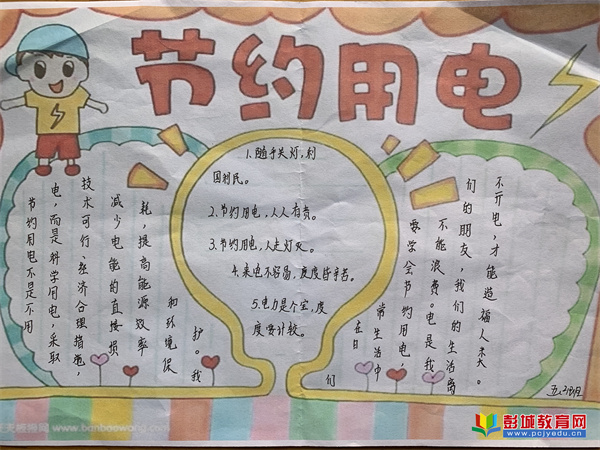 节约用电
节约用电不是不用
电，而是科学用电，采取
技术可行、经济合理措施，
减少电能的直接损
耗，提高能源效率
和环境保
护。我
们
在日
常生活中
要学会节约用电，
不能浪费。电是我
们的朋友，我们的生活离
不开电，才能造福人类。
1.随手关灯，利
国利民。
2.节约用电，人人有责。
3.节约用电，人走灯灭。
4.来电不容易，度度皆辛苦。
5.电力是个宝，度
度要计较。
板报网 www.banbaowang.com
彭城教育网
www.pcjyedu.cn